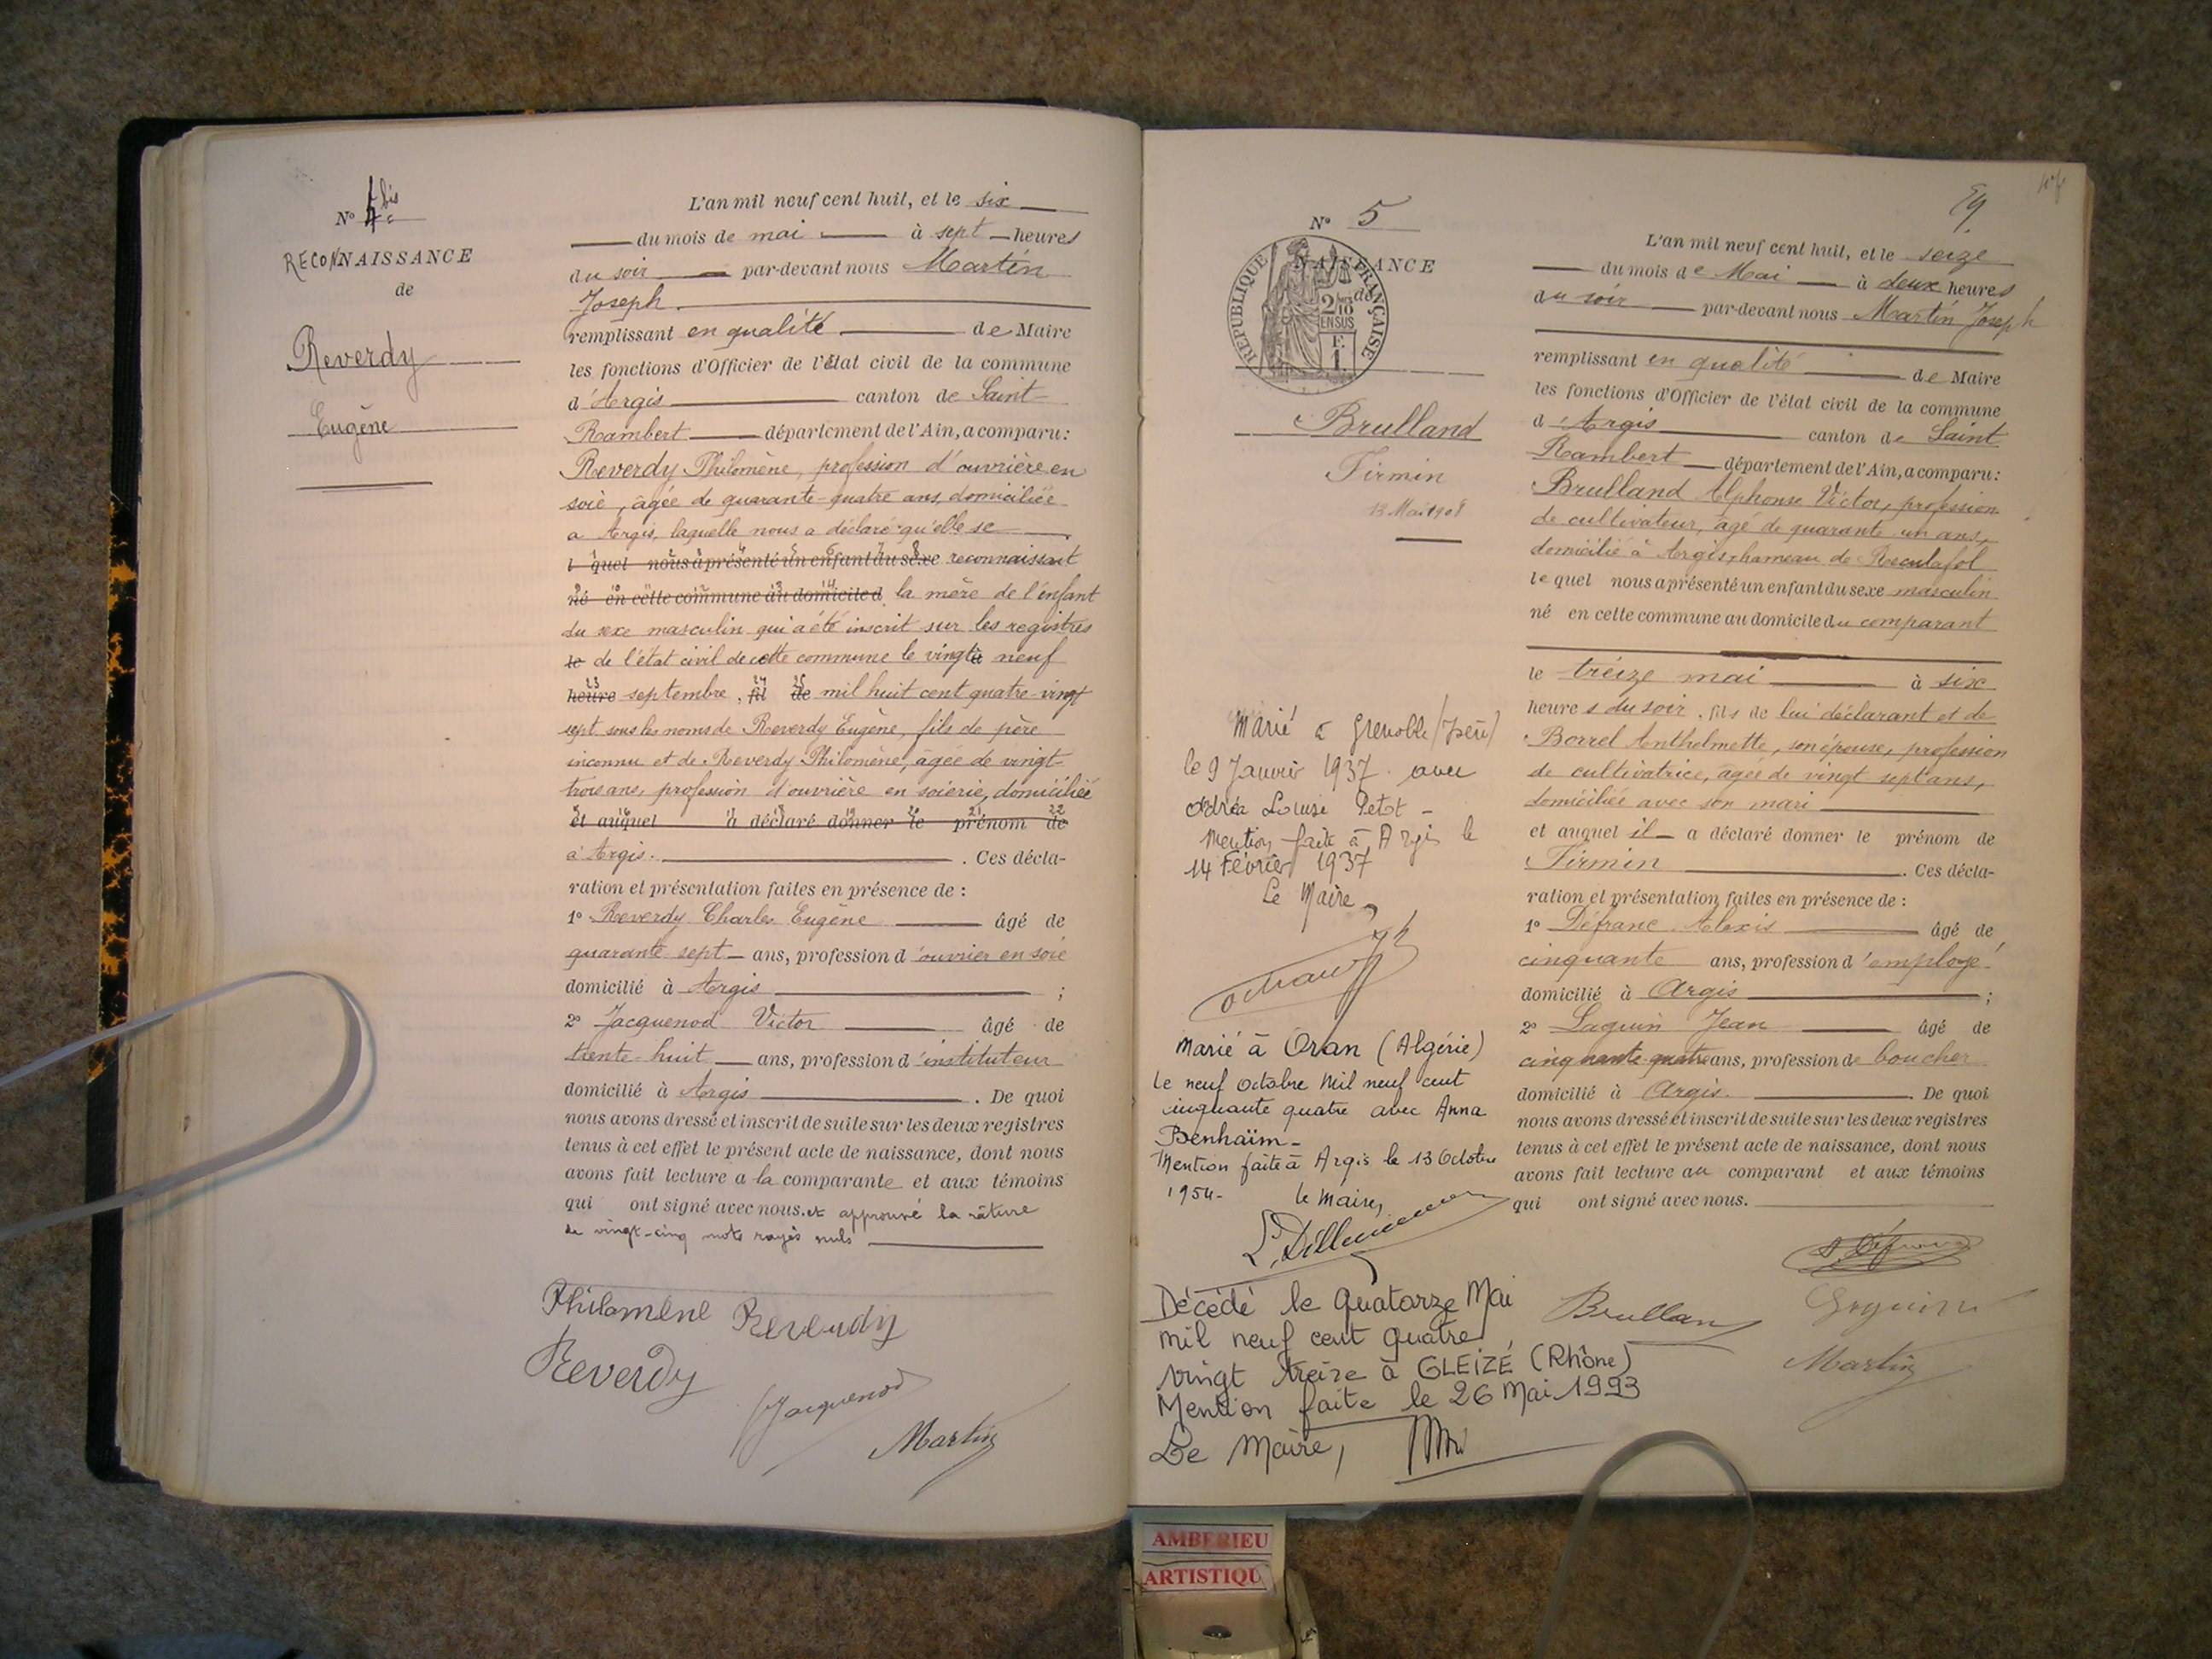 N° 4 bis
RECONNAISSANCE
de
Reverdy
Eugène
L'an mil neuf cent huit, et le six
du mois de mai à sept heures
du soir par-devant nous Martin
Joseph
remplissant en qualité de Maire
les fonctions d'Officier de l'état civil de la commune
d'Argis canton de Saint-
Rambert département de l'Ain, a comparu:
Reverdy Philomène, profession d'ouvrière en
soie, âgée de quarante-quatre ans, domiciliée
a Argis, laquelle nous a déclaré qu'elle se
l quel nous a présenté un enfant du sexe reconnaissait
né en cette commune au domicile d la mère de l'enfant
du sexe masculin qui a été inscrit sur les registres
le de l'état civil de cette commune le vingt à neuf
heure septembre, fil de mil huit cent quatre-vingt
sept sous les noms de Reverdy Eugène, fils de père
inconnu et de Reverdy Philomène, âgée de vingt-
trois ans, profession d'ouvrière en soierie, domiciliée
et auquel a déclaré donner le prénom de
à Argis. . Ces décla-
ration et présentation faites en présence de :
1° Reverdy Charles Eugène âgé de
quarante sept ans, profession d'ouvrier en soie
domicilié à Argis ;
2° Jacquenod Victor âgé de
trente-huit ans, profession d'instituteur
domicilié à Argis . De quoi
nous avons dressé et inscrit de suite sur les deux registres
tenus à cet effet le présent acte de naissance, dont nous
avons fait lecture a la comparante et aux témoins
qui ont signé avec nous. et approuvé la râture
de vingt-cinq mots rayés nuls
Philomène Reverdy
Reverdy
Jacquenod
Martin
N° 5
NAISSANCE
de
RÉPUBLIQUE FRANÇAISE
2/10
EN SUS
F.
1.
Brulland
Firmin
13 Mai 1908
Marié à Grenoble (Isère)
le 9 Janvier 1937 avec
Andréa Louise Petot -
Mention faite à Argis le
14 Février 1937
Le Maire,
Marié à Oran (Algérie)
le neuf octobre mil neuf cent
cinquante quatre avec Anna
Benhaïm -
Mention faite à Argis le 13 Octobre
1954-
le maire,
Décédé le Quatorze Mai
mil neuf cent quatre
vingt treize à GLEIZÉ (Rhône)
Mention faite le 26 Mai 1993
Le Maire,
59.
L'an mil neuf cent huit, et le seize
du mois de Mai à deux heures
du soir par-devant nous Martin Joseph
remplissant en qualité de Maire
les fonctions d'Officier de l'état civil de la commune
d'Argis canton de Saint
Rambert département de l'Ain, a comparu:
Brulland Alphonse Victor, profession
de cultivateur, âgé de quarante un ans,
domicilié à Argis, hameau de Reculafol
lequel nous a présenté un enfant du sexe masculin
né en cette commune au domicile du comparant
le treize mai à six
heures du soir, fils de lui déclarant et de
Borrel Anthelmette, son épouse, profession
de cultivatrice, âgée de vingt sept ans,
domiciliée avec son mari
et auquel il a déclaré donner le prénom de
Firmin . Ces décla-
ration et présentation faites en présence de :
1° Défranc Alexis âgé de
cinquante ans, profession d'employé
domicilié à Argis ;
2° Laguin Jean âgé de
cinquante-quatre ans, profession de boucher
domicilié à Argis. . De quoi
nous avons dressé et inscrit de suite sur les deux registres
tenus à cet effet le présent acte de naissance, dont nous
avons fait lecture au comparant et aux témoins
qui ont signé avec nous.
Brulland
Martin
AMBERIEU
ARTISTIQU